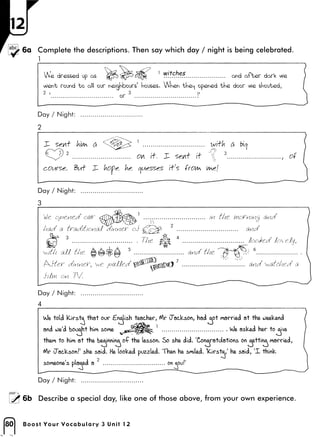 12
abc 6a Complete the descriptions. Then say which day / night is being celebrated.
1
We dressed up as 1 witches and after dark we
went round to all our neighbours' houses. When they opened the door we shouted,
2 ' or 3 ?'
Day / Night:
2
I sent him a 1 with a big
2 on it. I sent it 3, of
course. But I hope he guesses it's from me!
Day / Night:
3
We opened our 1 in the morning and
had a traditional dinner of 2 and
3. The 4 looked lovely,
with all the 5 and the 6.
After dinner, we pulled 7 and watched a
film on TV.
Day / Night:
4
We told Kirsty that our English teacher, Mr Jackson, had got married at the weekend
and we'd bought him some 1. We asked her to give
them to him at the beginning of the lesson. So she did. 'Congratulations on getting married,
Mr Jackson!' she said. He looked puzzled. Then he smiled. 'Kirsty,' he said, 'I think
someone's played a 2 on you!'
Day / Night:
6b Describe a special day, like one of those above, from your own experience.
80 Boost Your Vocabulary 3 Unit 12